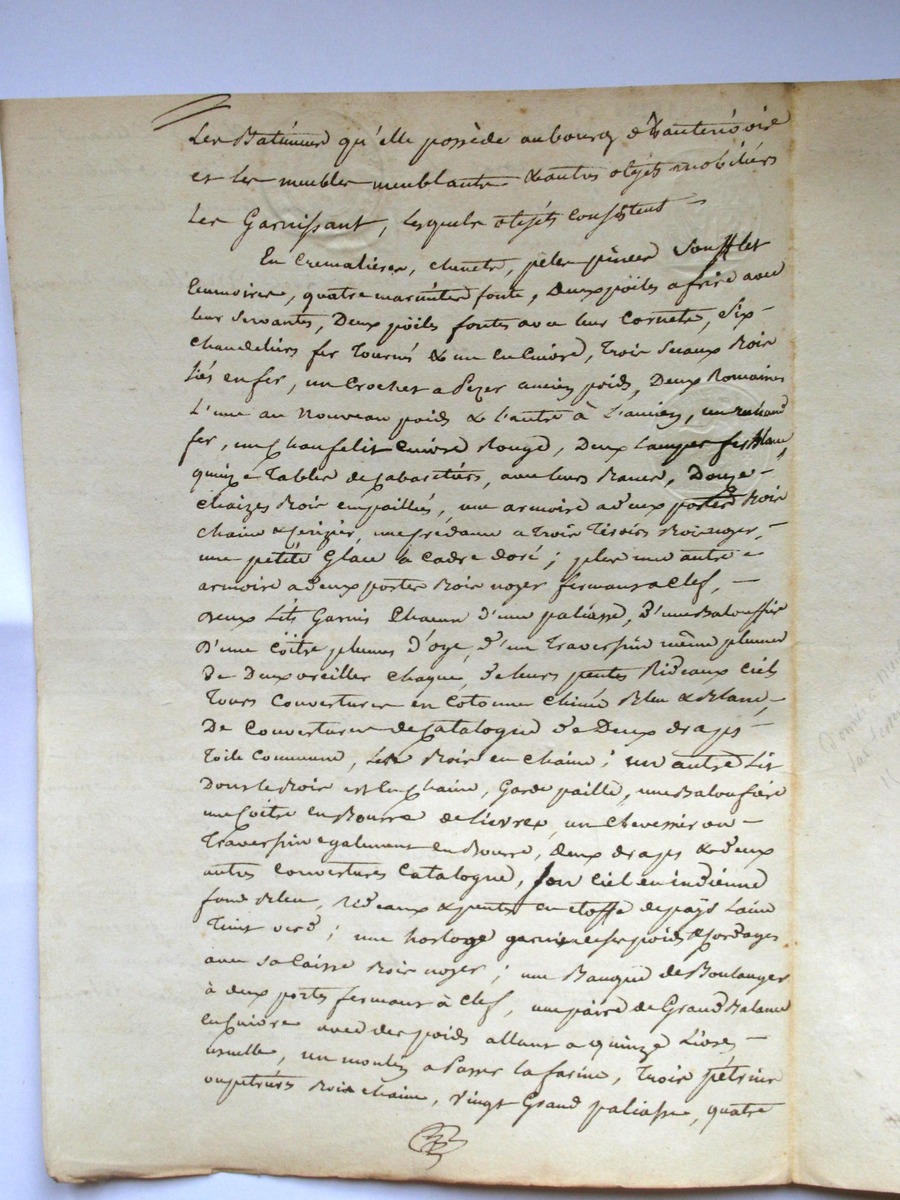 Les Batiments qu'elle possède au bourg d'hauterivoire
et les meubles meublants & autres objets mobiliers
Les Garnissant, lesquels objets Consistent —
En Cremalieres, chenets, peles pinces soufflet
Ecumoires, quatre marmites fonte, Deux pöiles a frire avec
leur servantes, Deux pöiles fontes avec leur Cornets, Six
chandeliers fer Tourné & un en Cuivre, Trois Seaux Bois
liés en fer, un Crochet a Pezer ancien poids, Deux Romaines
L'une au Nouveau poids & L'autre à L'ancien, un
fer, un Chaufelit Cuivre Rouge, Deux Lampes fer Blanc
quinze Tables de Cabaretiers, avec leurs Bancs, Douze —
chaizes Bois empaillés, une armoire a deux portes Bois
chaine & Cerizier, une Credance a Trois Tiroirs Bois noyer, —
une petite Glace à Cadre doré ; plus une autre —
armoire a deux portes Bois noyer fermant a Clef, —
Deux Lits Garnis Chacun d'une paliasse, d'une Baloufiere
D'une Cöitre plumes d'oye, d'un Traversin même plumes
de Deux oreiller chaque, de leurs pentes Rideaux Ciels
Tours Couvertures en Cotonne Chinée Bleu & Blanc, —
De Couvertures de Catalogne de Deux draps —
Toile Commune, Les Bois en chaine ; un autre Lit
dont le Bois est En Chaine, Garde paille, une Baloufiere
une Coitre en Bourre de lievres, un Chevessier ou —
Traversin également en Bourre, deux draps & deux
autres Couvertures Catalogne, son Ciel en indienne
fond Bleu, Rideaux & pentes en etoffe de pays Laine
Teint verd ; une horloge garnie de ses poids & Cordages
avec sa Caisse Bois noyer ; une Banque de Boulanger
à deux portes fermant à Clef, une paire de Grand Balance
en Cuivre avec des poids allant a quinze Livres —
usuelle, un moulin a Passer la farine, Trois pétrins
ou petrières Bois chaine, vingt Grand paliasse, quatre